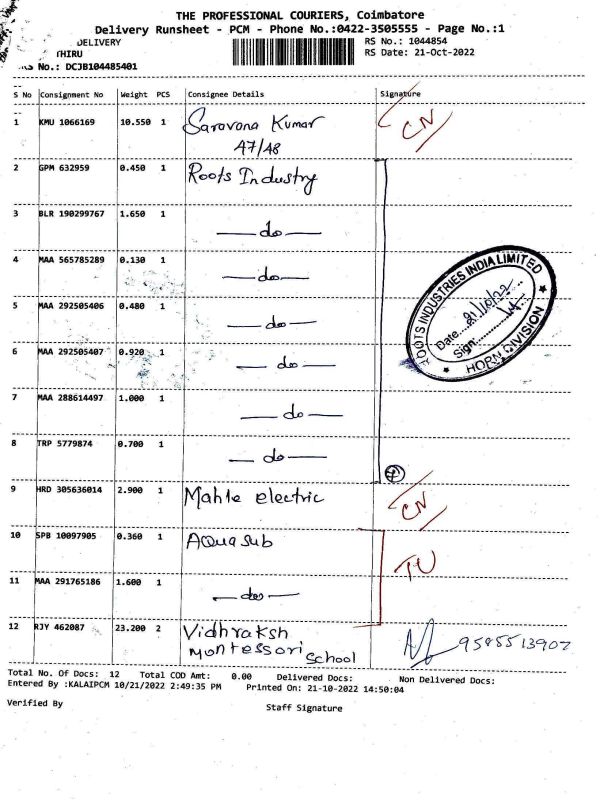 THE PROFESSIONAL COURIERS, Coimbatore
Delivery Runsheet - PCM - Phone No.:0422-3505555 - Page No.:1
DELIVERY
RS No.: 1044854
THIRU
RS Date: 21-Oct-2022
No.: DCJB104485401
S No Consignment No Weight PCS Consignee Details Signature
1 KMU 1066169 10.550 1 Saravona Kumar CN
47/48
2 GPM 632959 0.450 1 Roots Industry
3 BLR 190299767 1.650 1 — do —
4 MAA 565785289 0.130 1 — do —
5 MAA 292505406 0.480 1 — do —
6 MAA 292505407 0.920 1 — do —
7 MAA 288614497 1.000 1 — do —
8 TRP 5779874 0.700 1 — do —
ROOTS INDUSTRIES INDIA LIMITED
Date 21/10/22
Sign
HORN DIVISION
9 HRD 305636014 2.900 1 Mahle electric CN
10 SPB 10097905 0.360 1 Aquasub
11 MAA 291765186 1.600 1 — do —
12 RJY 462087 23.200 2 Vidhraksh
Montessori School
Total No. Of Docs: 12 Total COD Amt: 0.00 Delivered Docs: Non Delivered Docs:
Entered By :KALAIPCM 10/21/2022 2:49:35 PM Printed On: 21-10-2022 14:50:04
Verified By
Staff Signature